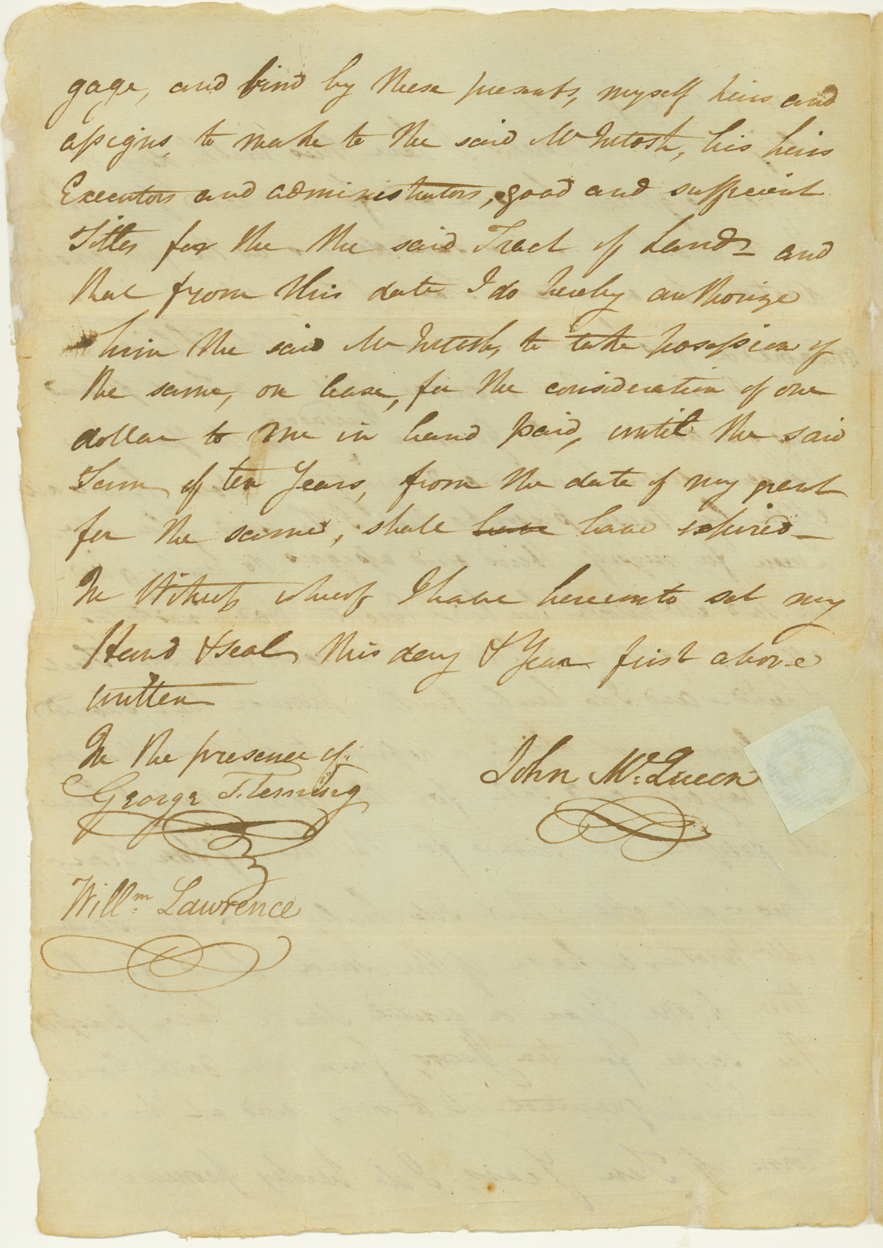 gage, and bind by these presents, myself heirs and
assigns, to make to the said McIntosh, his heirs
Executors and administrators, good and sufficient
Titles for the the said Tract of Land and
that from this date I do hereby authorize
him the said McIntosh, to take possession of
the same, on lease, for the consideration of one
dollar to me in hand paid, until the said
Term of ten Years, from the date of my grant
for the same, shall have have expired
In Witness whereof I have hereunto set my
Hand & seal this day & Year first above
written
In the presence of
George Fleming
John Mc:Queen
Willm: Lawrence